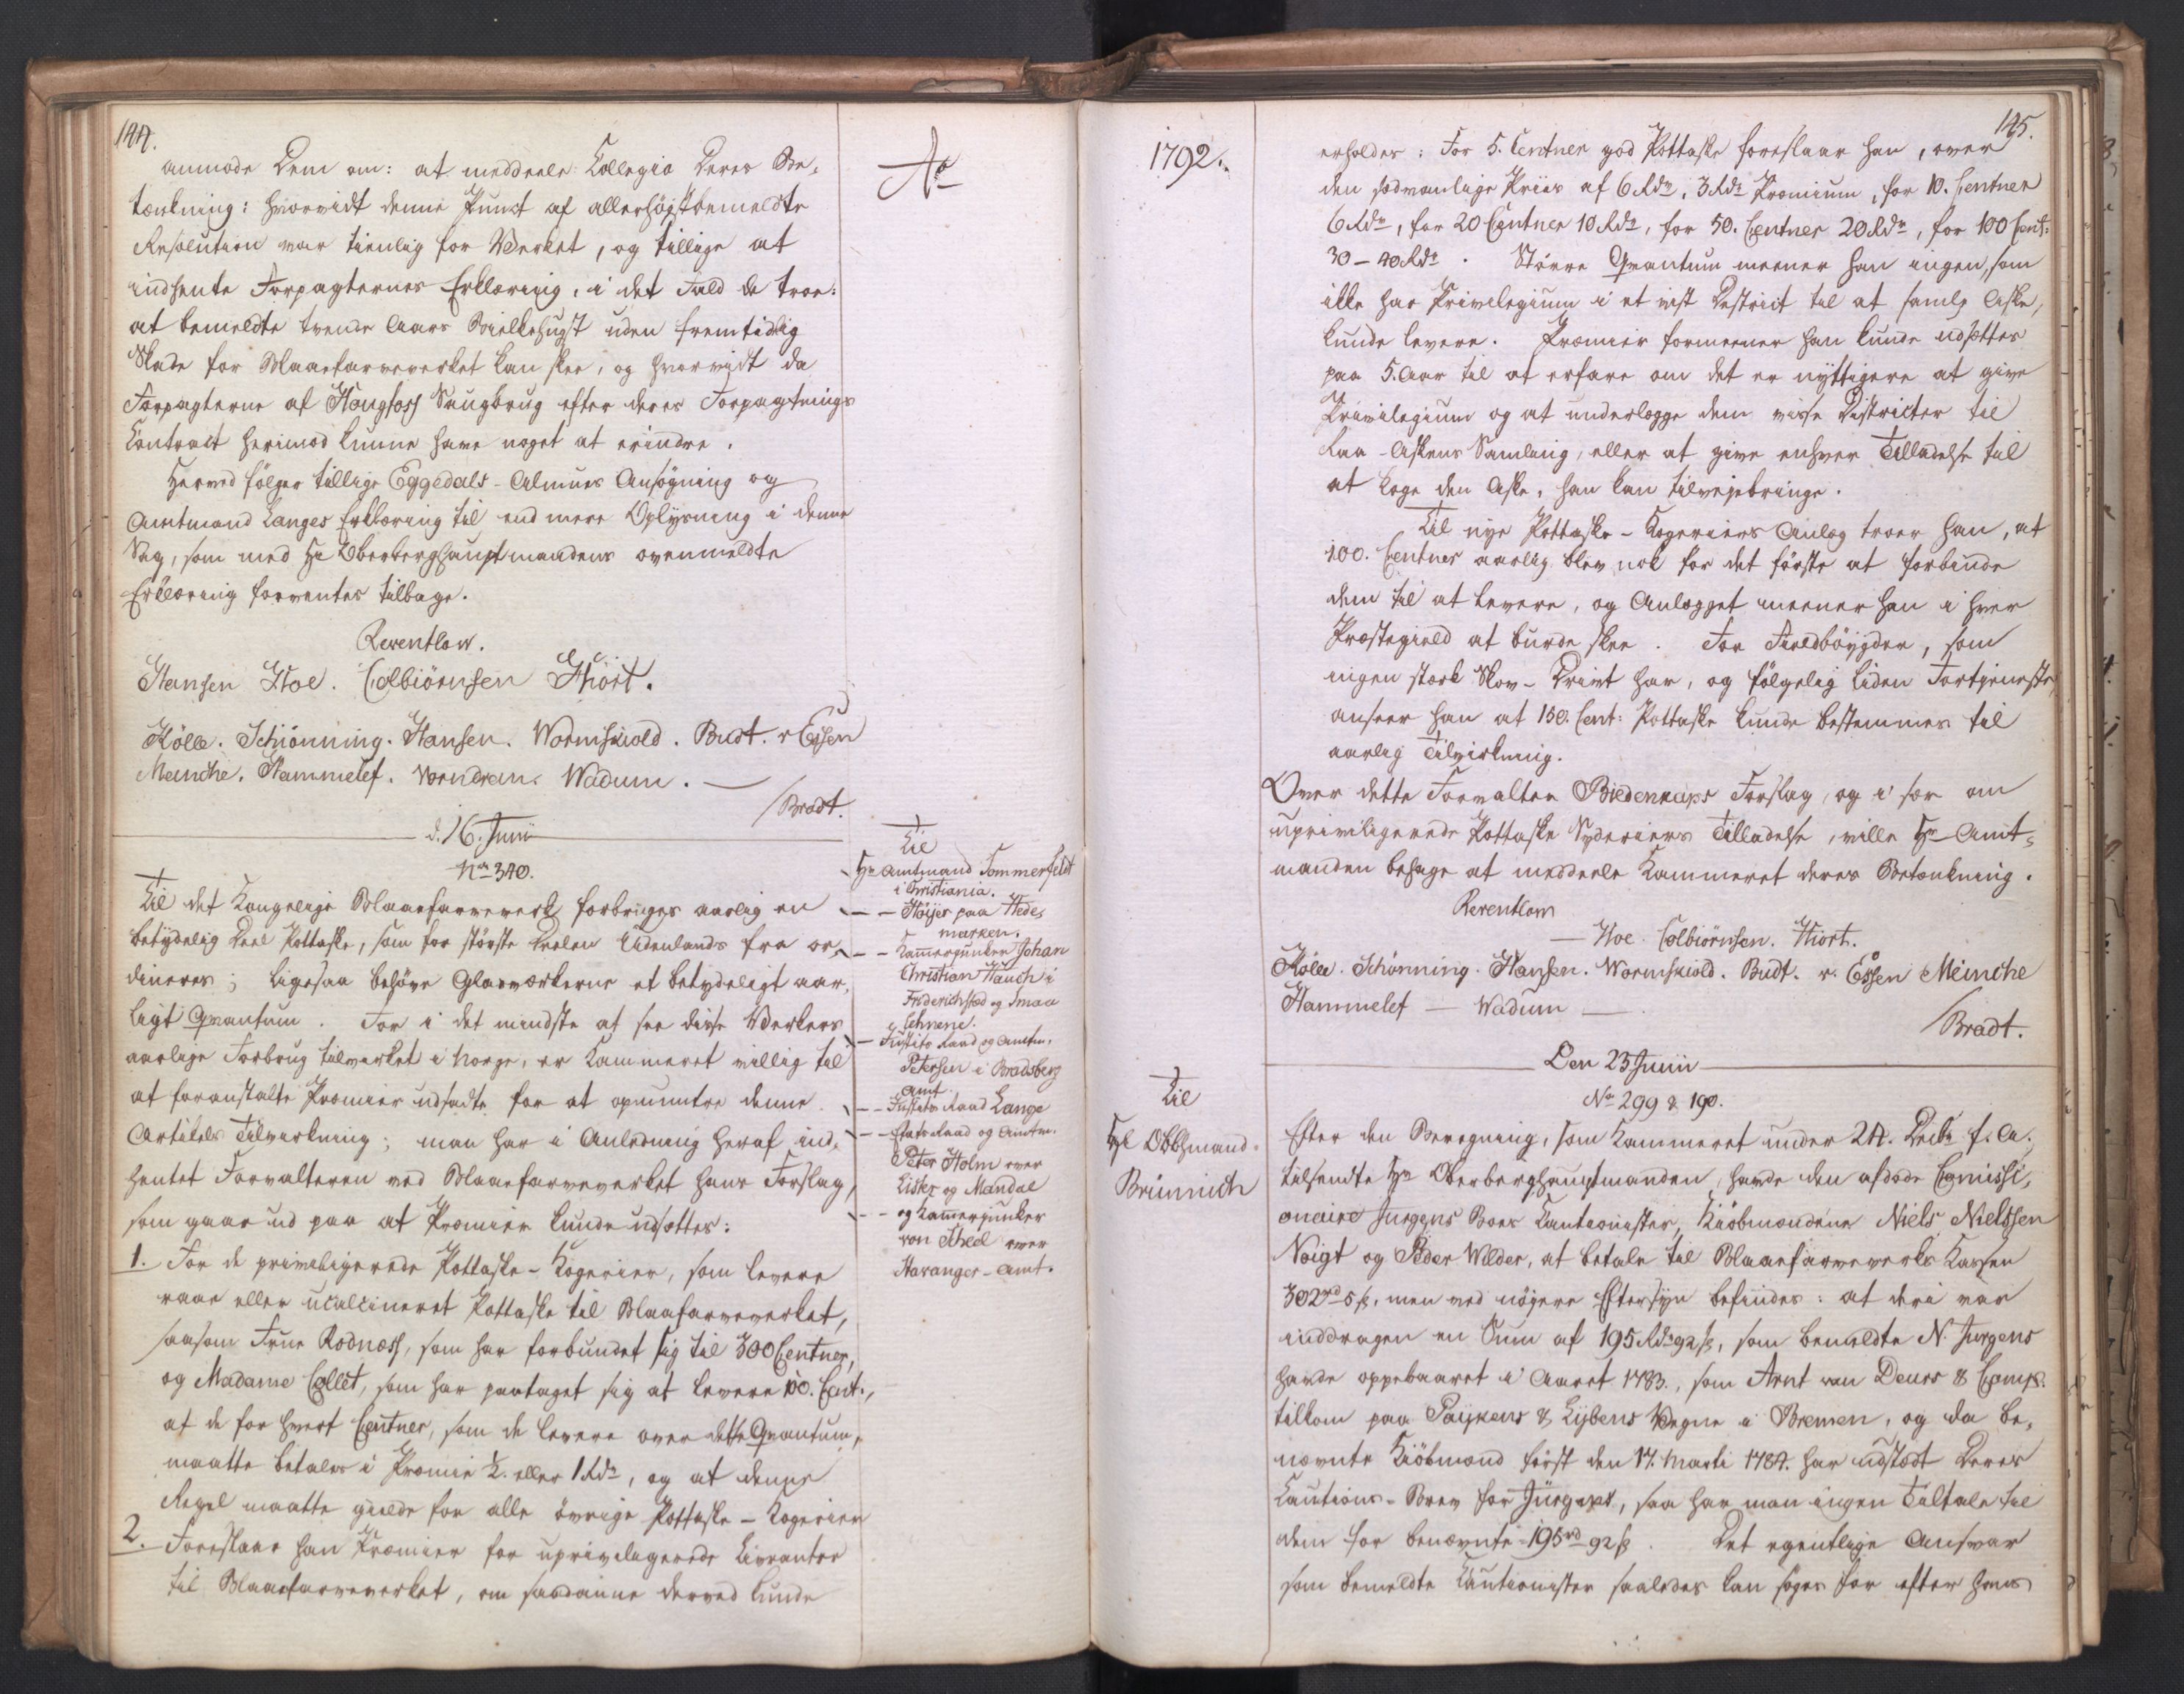 144.
anmode Dem om: at meddeele Collegio Deres Be-
tænkning: hvorvidt denne Punct af allerhøjstbemeldte
Resolution var tienlig for Verket, og tillige at
indhente Forpagternes Erklæring, i det Fald de troe:
at bemeldte trende Aars Bielkehugst uden fremtidig
Skade for Blaaefarveverket kan skee, og hvorvidt da
Forpagterne af Hougfoss Saugbrug efter deres Forpagtnings
Contract herimod kunne have noget at erindre.
Herved følger tillige Eggedals-Almues Ansøgning og
Amtmand Langes Erklæring til end mere Oplysning i denne
Sag, som med Hr Oberberghauptmandens ovenmeldte
Erklæring forventes tilbage.
Reventlow.
Hansen Hoe. Colbiörnsen Hiort.
Kölle. Schiönning. Hansen. Wormskiold. Budt. v Essen
Meinche. Hammelef. Vorndran. Wadum. —
/Bradt.
d. 16. Junii
No 340.
Til det Kongelige Blaaefarveverk forbruges aarlig en
betydelig Deel Pottaske, som for største Deelen Udenlands fra or-
dineres; ligesaa behøve Glasværkerne et betydeligt aar-
ligt Qvantum. For i det mindste at see disse Verkers
aarlige Forbrug tilvirket i Norge, er Kammeret villig til
at foranstalte Præmier udsadte for at opmuntre denne
Artikels Tilvirkning; man har i Anledning heraf ind-
hentet Forvalteren ved Blaaefarveverket hans Forslag,
som gaar ud paa at Præmier kunde udsættes:
1. For de privilegerede Pottaske-Kogerier, som levere
raae eller ucalcineret Pottaske til Blaafarveverket,
saasom Frue Rodnæss, som har forbundet sig til 300 Centner,
og Madame Collet, som har paataget sig at levere 100. Cent.,
at de for hvert Centner, som de levere over dette Qvantum,
maatte betales i Præmie ½. eller 1 Rdr, og at denne
Regel maatte gielde for alle øvrige Pottaske-Kogerier
2. Foreslaaer han Præmier for uprivilegerede Livranter
til Blaaefarveverket, om saadanne derved kunde
Ao
Til
Hr Amtmand Sommerfeldt
i Christiania.
— — Höijer paa Hede-
marken.
— — Kammerjunker Johan
Christian Hauch i
Friderichstad og Smaa
Lehnene.
— Justits Raad og Amtm.
Petersen i Bradsberg
Amt.
— — Justits Raad Lange
— — Etats Raad og Amtm.
Peter Holm over
Lister og Mandal
— — og Kammerjunker
von Scheel over
Stavanger-Amt.
1792.
Til
Hr Obbhmand
Brünnich
145.
erholdes: For 5. Centner god Pottaske foreslaar han, over
den sædvanlige Priis af 6 Rdr, 3 Rdr Præmium, for 10. Centner
6 Rdr, for 20 Centner 10 Rdr, for 50. Centner 20 Rdr, for 100 Cent:
30 - 40 Rdr. Større Qvantum meener han ingen, som
ikke har Privilegium i et vist District til at samle Aske,
kunde levere. Præmier formeener han kunde udsættes
paa 5. Aar til at erfare om det er nyttigere at give
Privilegium og at underlægge dem visse Districter til
Raa-Askens Samling, eller at give enhver Tilladelse til
at koge den Aske, han kan tilvejebringe.
Til nye Pottaske-Kogeriers Anlæg troer han, at
100. Centner aarlig blev nok for det første at forbinde
dem til at levere, og Anlægget meener han i hver
Præstegield at burde skee. For Fieldbøygder, som
ingen stærk Skov-Drivt har, og følgelig liden Fortjeneste,
anseer han at 150. Cent: Pottaske kunde bestemmes til
aarlig Tilvirkning.
Over dette Forvalter Biedenkaps Forslag, og i sær om
uprivilegerede Pottaske Syderiers Tilladelse, ville Hr Amt-
manden behage at meddeele Kammeret deres Betænkning.
Reventlow
— Hoe. Colbiörnsen. Hiort.
Kölle. Schönning. Hansen. Wormskiold. Budt. v. Essen Meinche
Hammelef — Wadum —
/Bradt.
Den 23 Junii
No 299 & 190.
Efter den Beregning, som Kammeret under 24. Decbr f. A.
tilsendte Hr Oberberghauptmanden, havde den afdøde Comissi-
onaire Jurgens Boes Cautionister, Kiöbmændene Niels Nielssen
Voigt og Peder Wilder, at betale til Blaaefarveverks Kassen
302 rd 5 ß, men ved nøyere Eftersyn befindes: at deri var
inddragen en Sum af 195 Rdr 92 ß, som bemeldte N. Jurgens
havde oppebaaret i Aaret 1783., som Arnt van Deurs & Comp.
tilkom paa Paykens & Lybens Vegne i Bremen, og da be-
nævnte Kiöbmænd først den 17. Marti 1784. har udstædt Deres
Cautions-Brev for Jürgens, saa har man ingen Tiltale til
dem for benævnte 195 rd 92 ß. Det egentlige Ansvar
som bemeldte Cautionister saaledes kan søges for efter hans